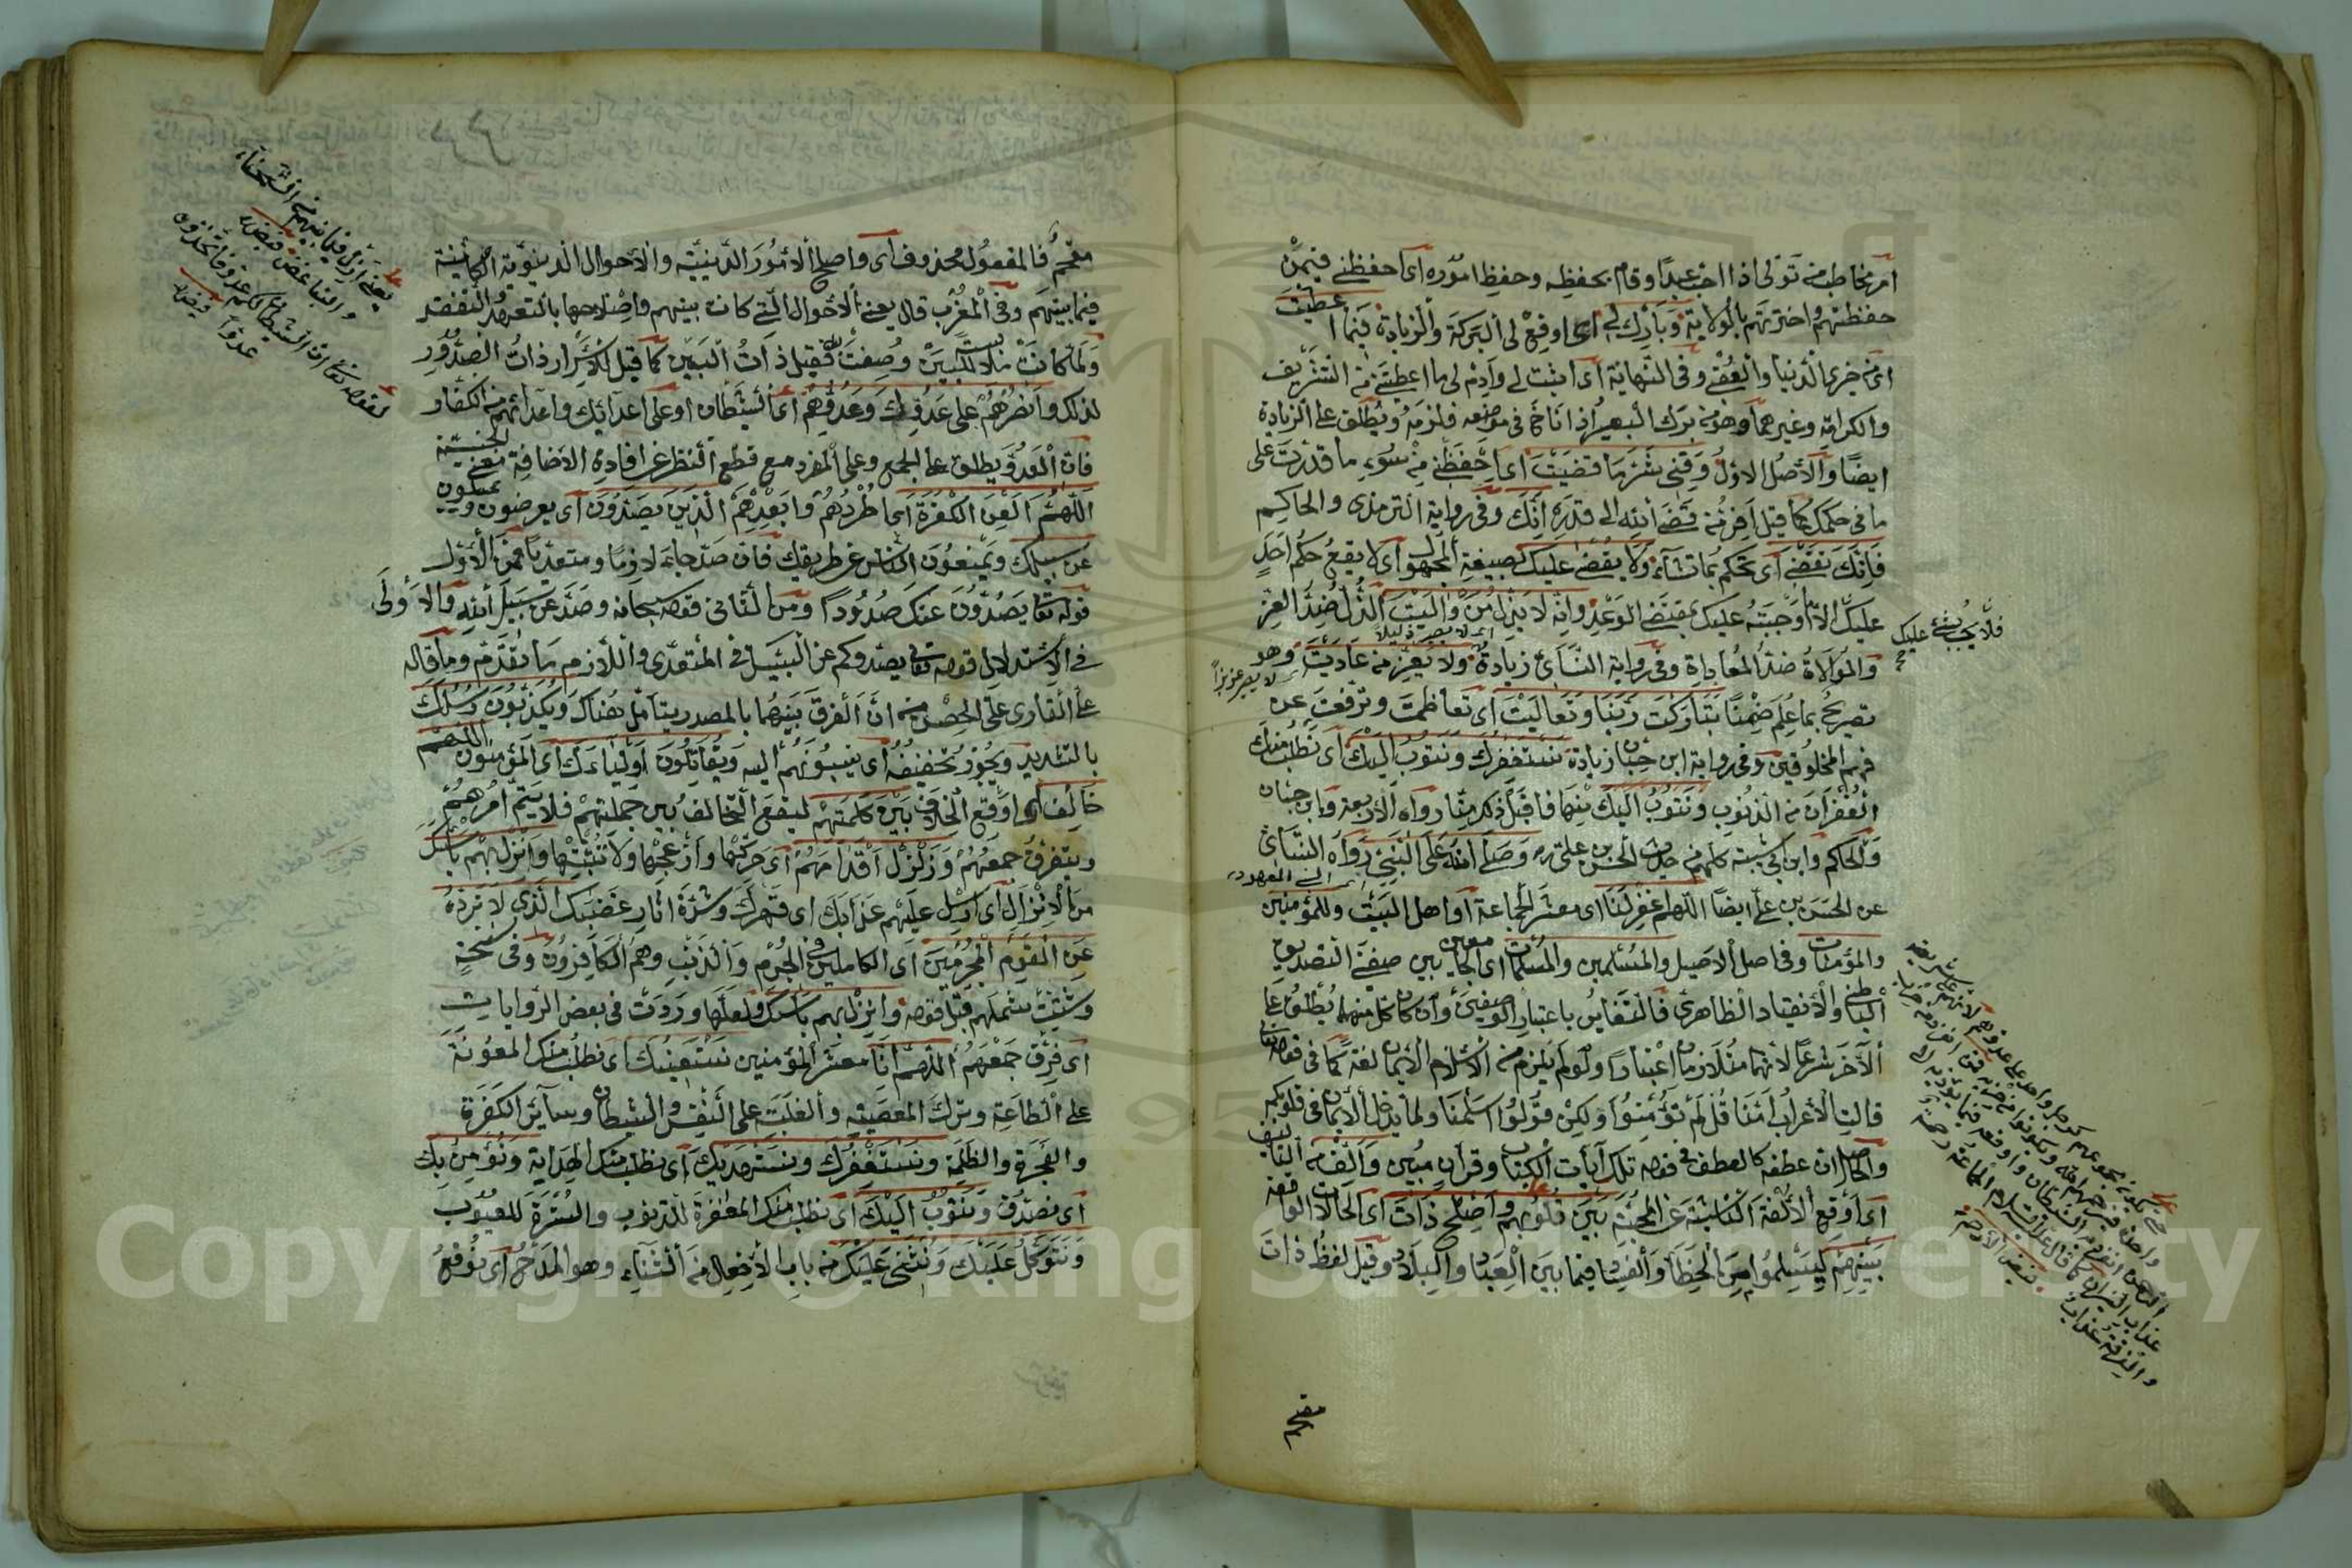 امر مخاطب من تولى اذا احب عبدا وقام بحفظه وحفظ اموره اى احفظنى فيمن
حفظتهم واخترتهم بالولاية وبارك لى اى اوقع لى البركة والزيادة فيما اعطيت
اى من خيرى الدنيا والعقبى وفى النهاية اى اثبت لى وادم لى ما اعطيتنى من التشريف
والكرامة وغيرهما وهو من برك البعير اذا اناخ فى موضعه فلزمه ويطلق على الزيادة
ايضا والاصل الاول وقنى شر ما قضيت اى احفظنى من سوء ما قدرت على
ما فى حكمك كما قيل افر من قضاء الله الى قدره انك وفى رواية الترمذى والحاكم
فانك تقضى اى تحكم بما تشاء ولا يقضى عليك بصيغة المجهول اى لا يقع حكم احد
عليك الا ما اوجبته عليك بمقتضى الوعد وانه لا يذل من واليت الذل ضد العز
فلا يجب شئ عليك
اى لا يصير ذليلا
والموالاة ضد المعاداة وفى رواية النسائى زيادة ولا يعز من عاديت وهو
اى لا يصير عزيزا
تصريح بما علم ضمنا تباركت ربنا وتعاليت اى تعاظمت وترفعت عن
فهم المخلوقين وفى رواية ابن حبان زيادة نستغفرك ونتوب اليك اى نطلب منك
الغفران من الذنوب ونتوب اليك رواه الاربعة وابن حبان
والحاكم وابن ابى شيبة كلهم من حديث الحسن بن على وصلى الله على النبى رواه النسائى
اى النبى المعهود
عن الحسن بن على ايضا اللهم اغفر لنا اى معشر الجماعة او اهل البيت وللمؤمنين
والمؤمنات وفى اصل الاصيل والمسلمين والمسلمات اى الجامعين بين صيغتى التصديق
الباطنى والانقياد الظاهرى فالتغاير باعتبار الوصفين وان كان كل منهما يطلق على
الآخر شرعا لانهما متلازمان اعتبارا ولو لم يلزم من الاسلام الايمان لغة كما فى قوله تعالى
قالت الاعراب آمنا قل لم تؤمنوا ولكن قولوا اسلمنا ولما يدخل الايمان فى قلوبكم
والحاصل ان عطفه كالعطف فى قوله تلك آيات الكتاب وقرآن مبين والف من التاليف
اى اوقع الالفة الناشئة عن المحبة بين قلوبهم واصلح ذات اى الحالات الواقعة
بينهم ليسلموا من الخطأ والفساد فيما بين العباد والبلاد وقيل لفظ ذات
مقحم
مقحم فالمفعول محذوف اى واصلح الامور الدينية والاحوال الدنيوية الكائنة
فيما بينهم وفى المغرب قال يعنى الاحوال التى كانت بينهم واصلاحها بالتعهد والتفقد
ولما كانت ملابسة للبين وصفت به فقيل ذات البين كما قيل للاسرار ذات الصدور
لذلك وانصرهم على عدوك وعدوهم اى الشيطان او على اعدائك واعدائهم من الكفار
فان العدو يطلق على الجمع وعلى المفرد مع قطع النظر عن افادة الاضافة معنى الجنسية
اللهم العن الكفرة اى اطردهم وابعدهم الذين يصدون اى يعرضون ويميلون
عن سبيلك ويمنعون الناس عن طريقك فان صد جاء لازما ومتعديا فمن الاول
قوله تعالى يصدون عنك صدودا ومن الثانى قوله سبحانه وصد عن سبيل الله والاولى
فى الاستدلال قوله تعالى يصدوكم عن السبيل فى المتعدى واللازم ما تقدم وما قاله
على القارى على الحصن من ان الفرق بينهما بالمصدر يتأمل هناك ويكذبون رسلك
بالتشديد ويجوز تخفيفه اى ينسبونهم اليه ويقاتلون اولياءك اى المؤمنون اللهم
خالف اى اوقع الخلاف بين كلمتهم ليقع التخالف بين جملتهم فلا يتم امرهم
ويتفرق جمعهم وزلزل اقدامهم اى حركها وازعجها ولا تثبتها وانزل بهم باسك
من الانزال اى ارسل عليهم عذابك اى قهرك وشدة آثار غضبك الذى لا ترده
عن القوم المجرمين اى الكاملين فى الجرم والذنب وهم الكافرون وفى نسخة
وشتت شملهم قبل قوله وانزل بهم باسك ولعلها وردت فى بعض الروايات
اى فرق جمعهم اللهم انا معشر المؤمنين نستعينك اى نطلب منك المعونة
على الطاعة وترك المعصية والغلبة على النفس والشيطان وسائر الكفرة
والفجرة والظلمة ونستغفرك ونستهديك اى نطلب منك الهداية ونؤمن بك
اى نصدق ونتوب اليك اى نطلب منك المغفرة للذنوب والسترة للعيوب
ونتوكل عليك ونثنى عليك من باب الافعال من الثناء وهو المدح اى نوقع
Copyright © King Saud University